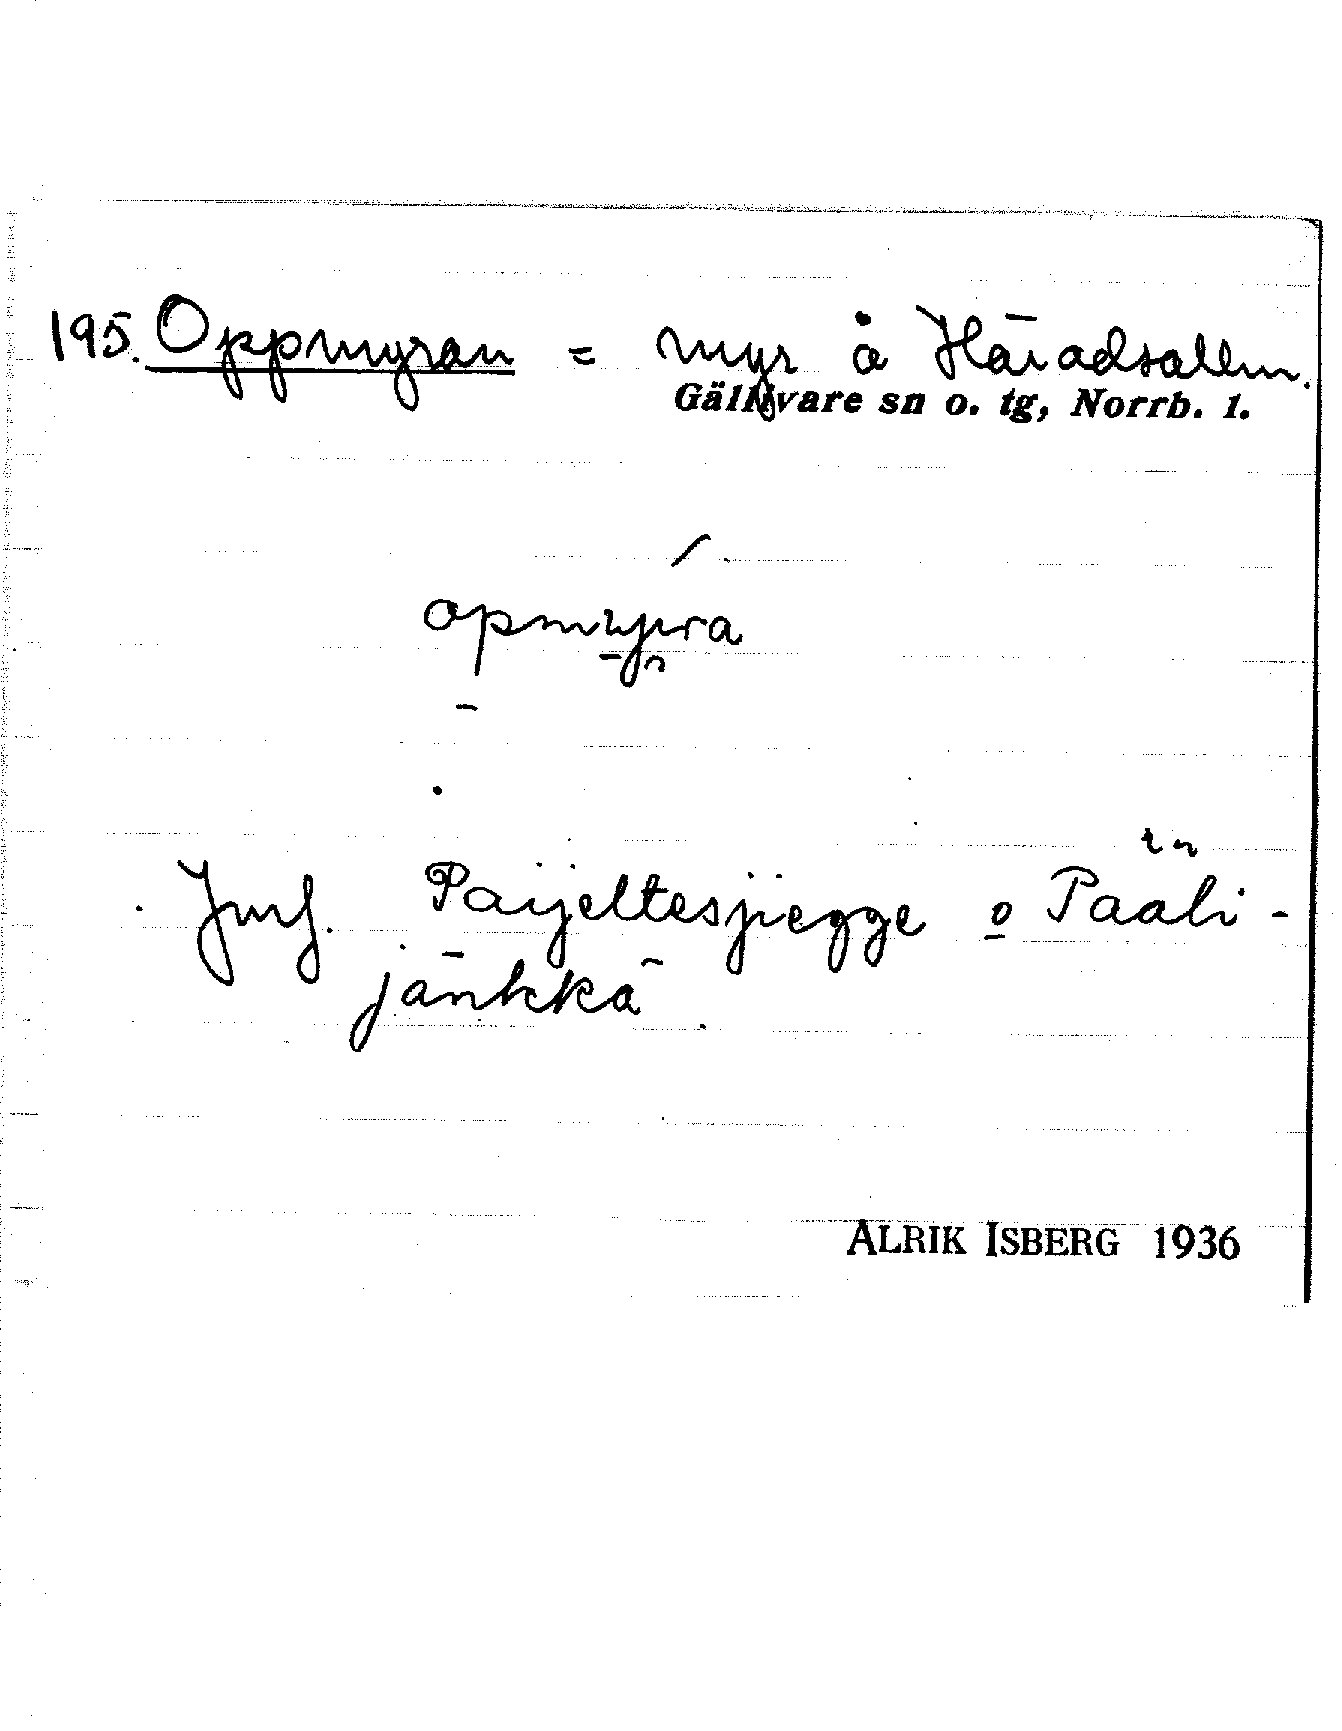 195. Oppmyran = myr å Häradsallm.
Gällivare sn o. tg, Norrb. l.
opmyra
Jmf. Paijeltesjiegge o Paali-
jänkkä
ALRIK ISBERG 1936